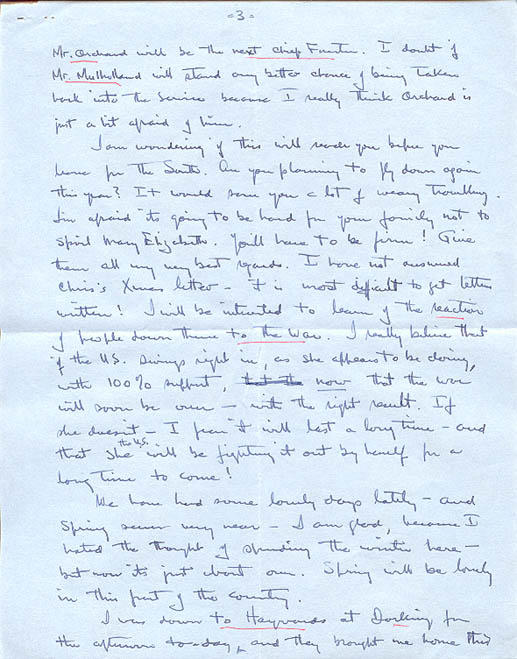 - 3 -
Mr. Orchard will be the next chief Forester. I doubt if
Mr. Mulholland will stand any better chance of being taken
back into the Service because I really think Orchard is
just a bit afraid of him.
I am wondering if this will reach you before you
leave for the South. Are you planning to fly down again
this year? It would save you a lot of weary travelling.
I'm afraid its going to be hard for your family not to
spoil Mary Elizabeth. You'll have to be firm! Give
them all my very best regards. I have not answered
Chris's Xmas letter - it is most difficult to get letters
written! I will be interested to learn of the reaction
of people down there to the War. I really believe that
if the U.S. swings right in, as she appears to be doing,
with 100% support, now that the war
will soon be over - with the right result. If
she doesn't - I fear it will last a long time - and
that she the U.S. will be fighting it out by herself for a
long time to come!
We have had some lovely days lately - and
Spring seems very near - I am glad, because I
hated the thought of spending the winter here -
but now its just about over. Spring will be lovely
in this part of the country.
I was down to Haywards at Dorking for
the afternoon to-day, and they brought me home this